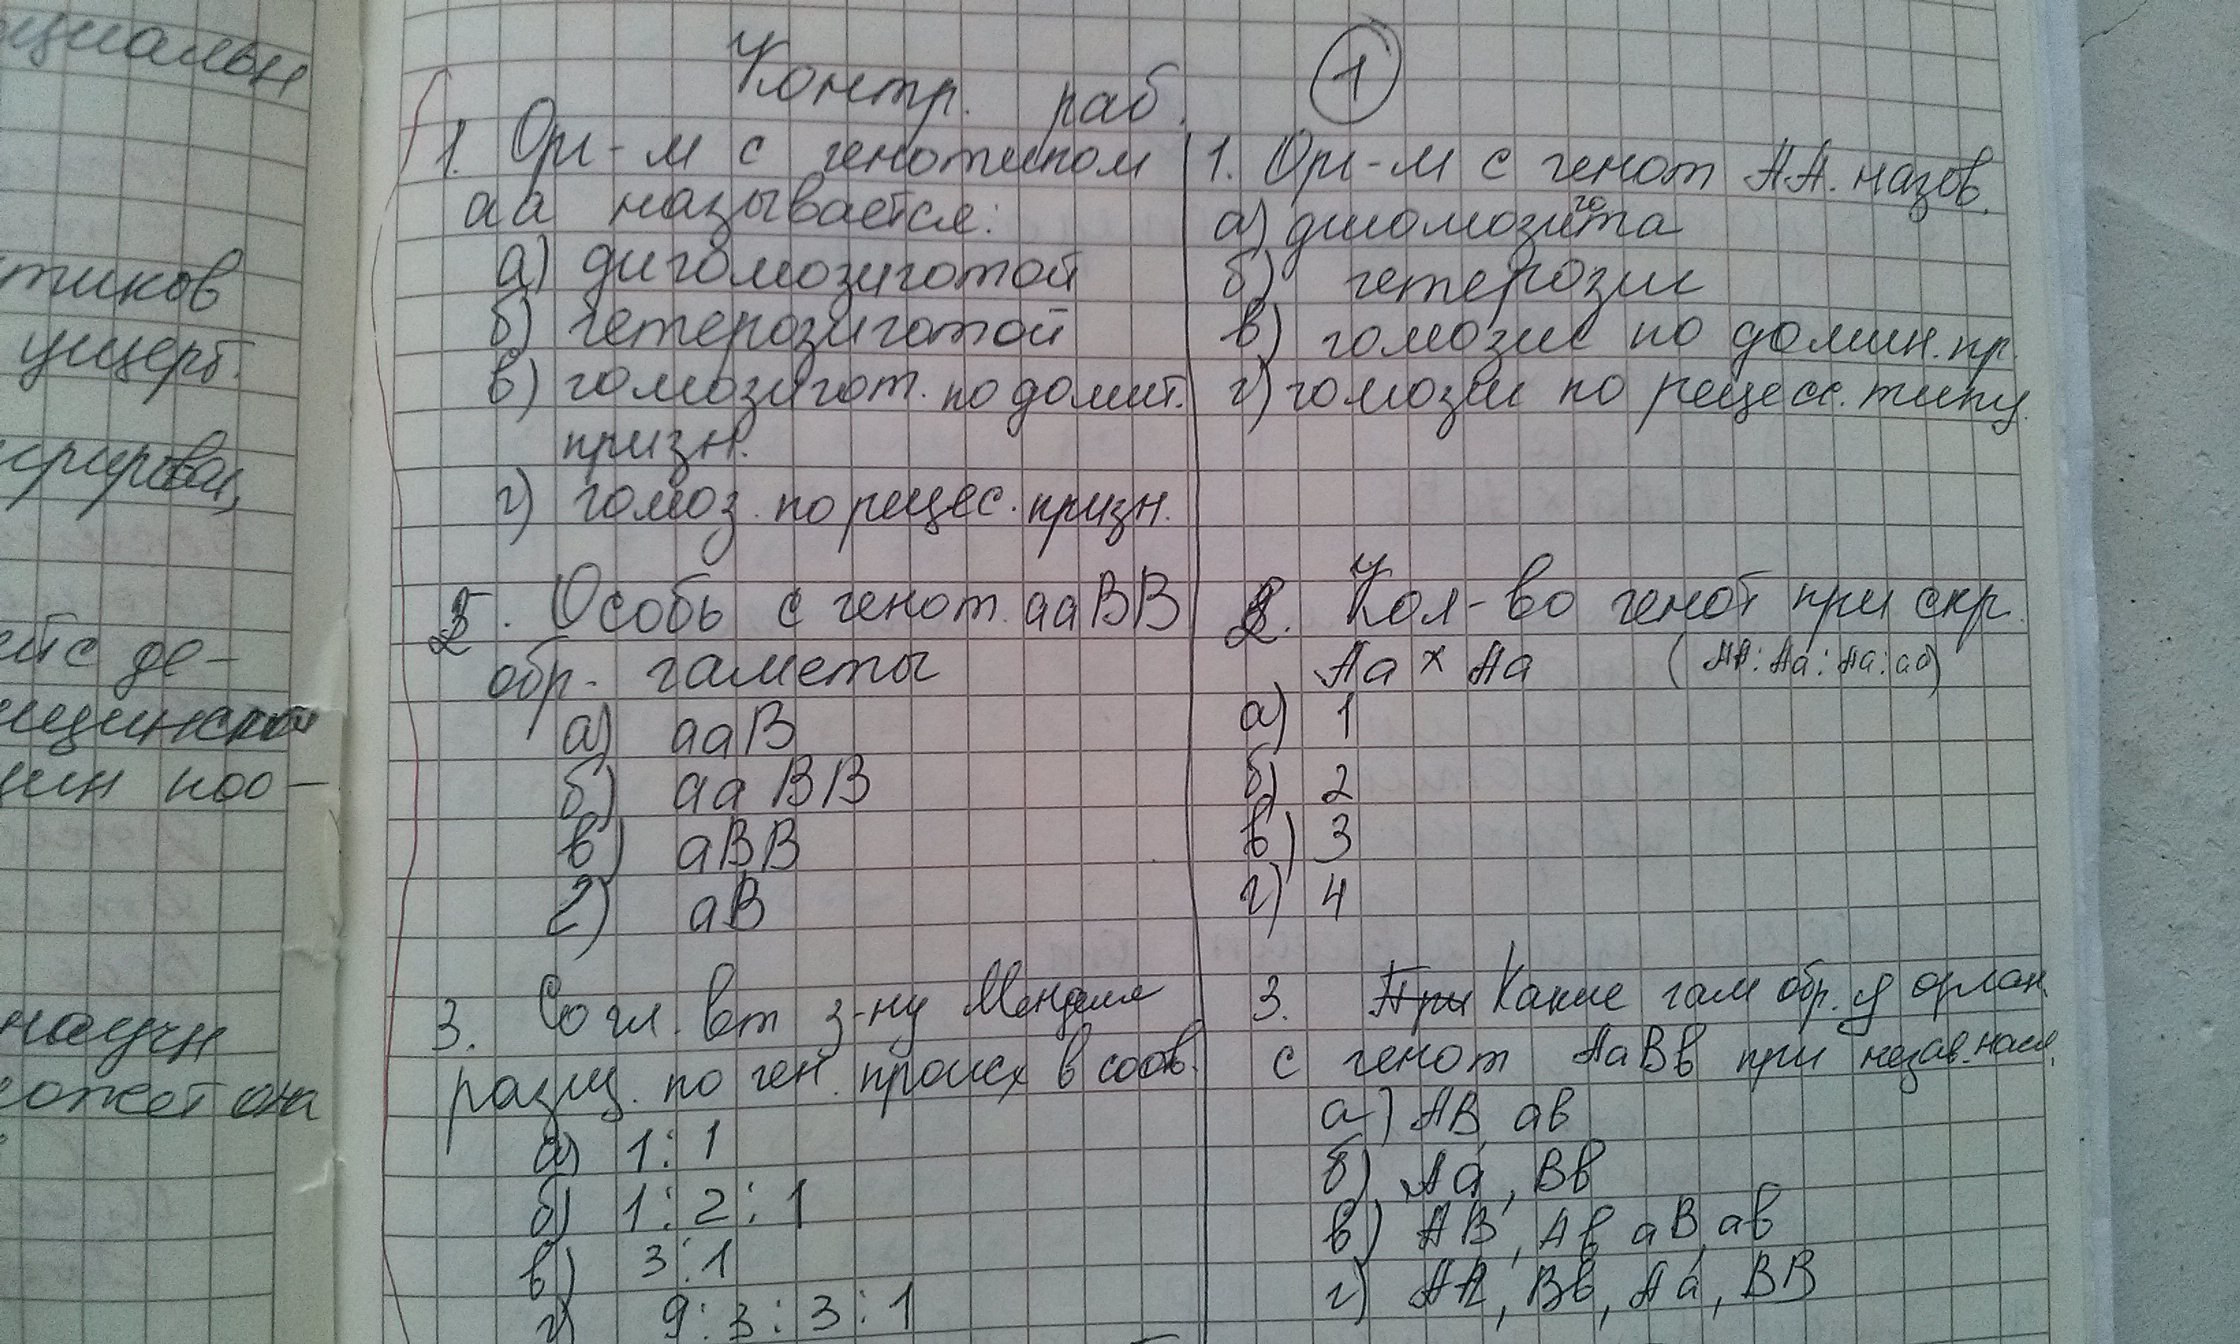 циальн
тиков
ущерб.
ейс де-
ицинской
ции поо-
научн
может она
Контр. раб. 1
1. Орг-м с генотипом
аа называется:
а) дигомозиготой
б) гетерозиготой
в) гомозигот. по домит.
призн.
г) гомоз. по рецес. призн.
2. Особь с генот. ааВВ
обр. гаметы
а) ааВ
б) аа ВВ
в) аВВ
г) аВ
3. Согл. вт з-ну Менделя
расщ. по ген. происх в соотв.
а) 1:1
б) 1:2:1
в) 3:1
г) 9:3:3:1
1. Орг-м с генот АА. назов.
а) дигомозигота
б) гетерозиг
в) гомозиг по домин. пр.
г) гомозиг по рецесс. типу.
2. Кол-во генот при скр.
Аа х Аа (АА:Аа:Аа:аа)
а) 1
б) 2
в) 3
г) 4
3. При Какие гам обр. у орган.
с генот АаВв при незав. насл.
а) АВ, ав
б) Аа, Вв
в) АВ, Ав, аВ, ав
г) АА, Вв, Аа, ВВ